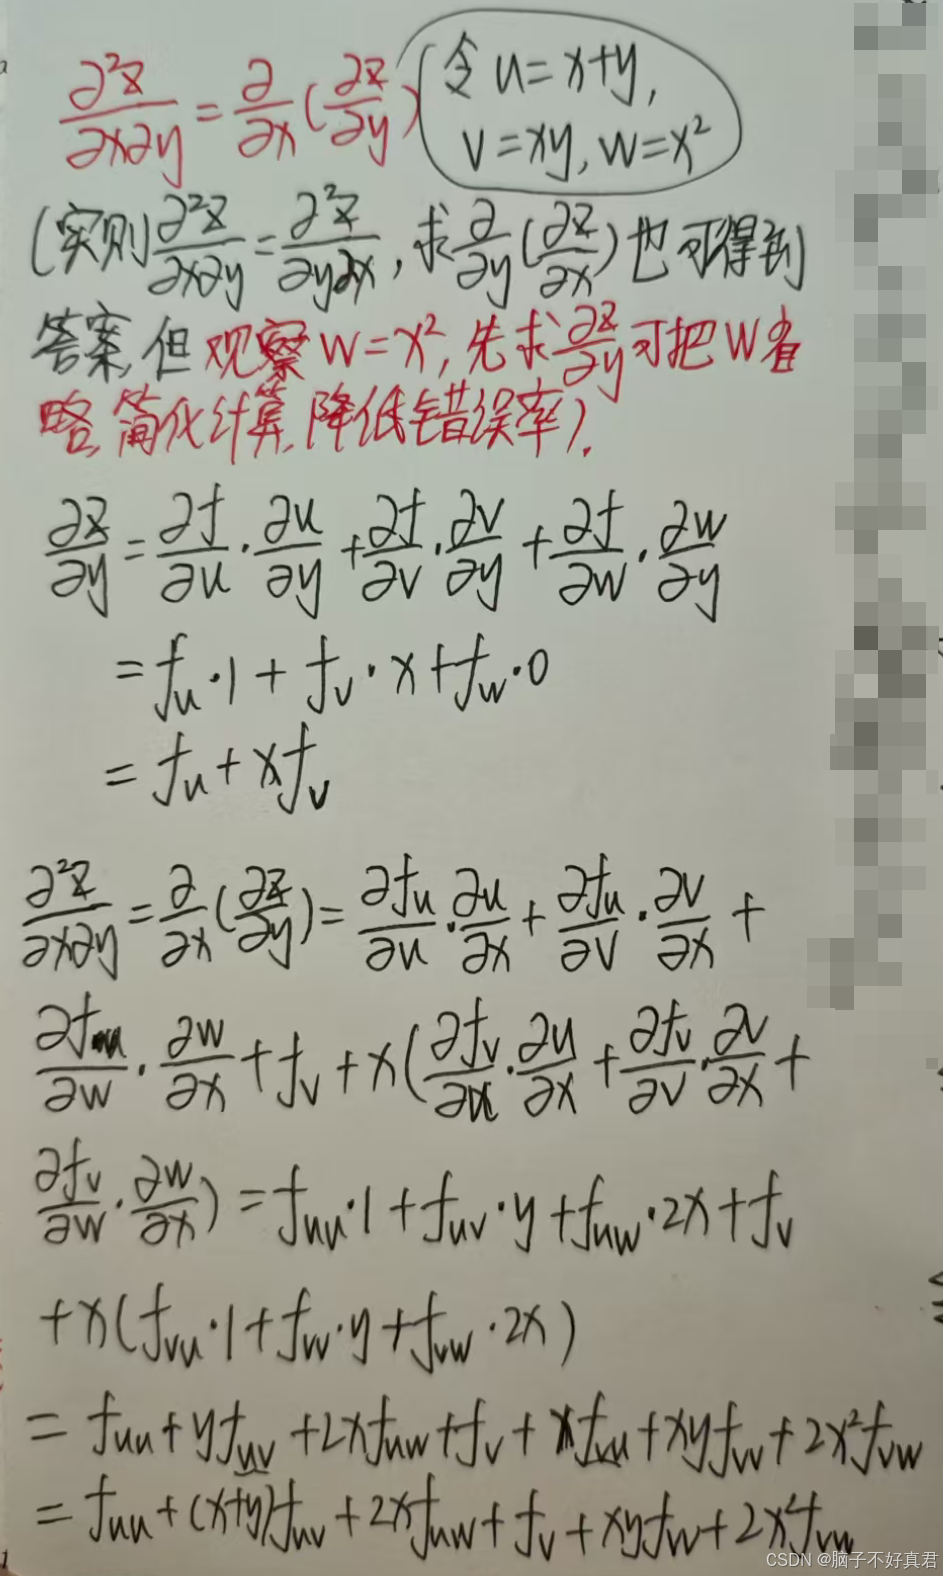 ∂²z/∂x∂y = ∂/∂x (∂z/∂y) (令 u=x+y,
v=xy, w=x²
(实则 ∂²z/∂x∂y = ∂²z/∂y∂x, 求 ∂/∂y (∂z/∂x) 也可得到
答案, 但观察 w=x², 先求 ∂z/∂y 可把 w 省
略, 简化计算, 降低错误率).
∂z/∂y = ∂f/∂u · ∂u/∂y + ∂f/∂v · ∂v/∂y + ∂f/∂w · ∂w/∂y
= f_u · 1 + f_v · x + f_w · 0
= f_u + x f_v
∂²z/∂x∂y = ∂/∂x (∂z/∂y) = ∂f_u/∂u · ∂u/∂x + ∂f_u/∂v · ∂v/∂x +
∂f_u/∂w · ∂w/∂x + f_v + x(∂f_v/∂u · ∂u/∂x + ∂f_v/∂v · ∂v/∂x +
∂f_v/∂w · ∂w/∂x) = f_uu · 1 + f_uv · y + f_uw · 2x + f_v
+ x(f_vu · 1 + f_vv · y + f_vw · 2x)
= f_uu + y f_uv + 2x f_uw + f_v + x f_vu + xy f_vv + 2x² f_vw
= f_uu + (x+y) f_uv + 2x f_uw + f_v + xy f_vv + 2x² f_vw
CSDN @脑子不好真君